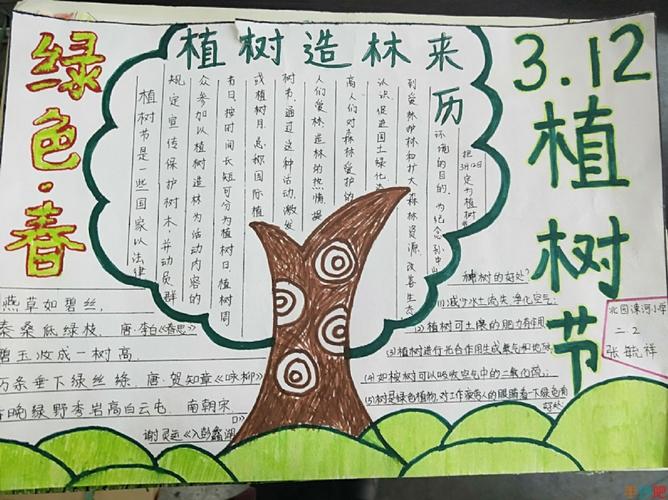 绿色·春
植树造林来历
3.12植树节
植树节是一些国家以法律
规定宣传保护树木，并动员群
众参加以植树造林为活动内容的
节日，按时间长短可分为植树日、植树周
或植树月，总称国际植
树节。通过这种活动，激发
人们爱林、造林的热情，提
高人们对森林爱护的
认识，促进国土绿化，达
到爱林护林和扩大森林资源、改善生态
环境的目的。为纪念孙中山
把3月12日定为植树
燕草如碧丝，
秦桑低绿枝。唐·李白《春思》
碧玉妆成一树高，
万条垂下绿丝绦。唐·贺知章《咏柳》
春晚绿野秀岩高白云屯。南朝宋
谢灵运《入彭蠡湖
种树的好处？
(1)减少水土流失，净化空气；
(2)植树可土壤的肥力有作用
(3)植树进行光合作用生成氧气和
(4)如桉树可以吸收空气中的二氧化硫；
(5)树是绿色植物，对工作疲劳人的眼睛看一下绿色有
好处。
北园漯河小学
二2
张毓祥